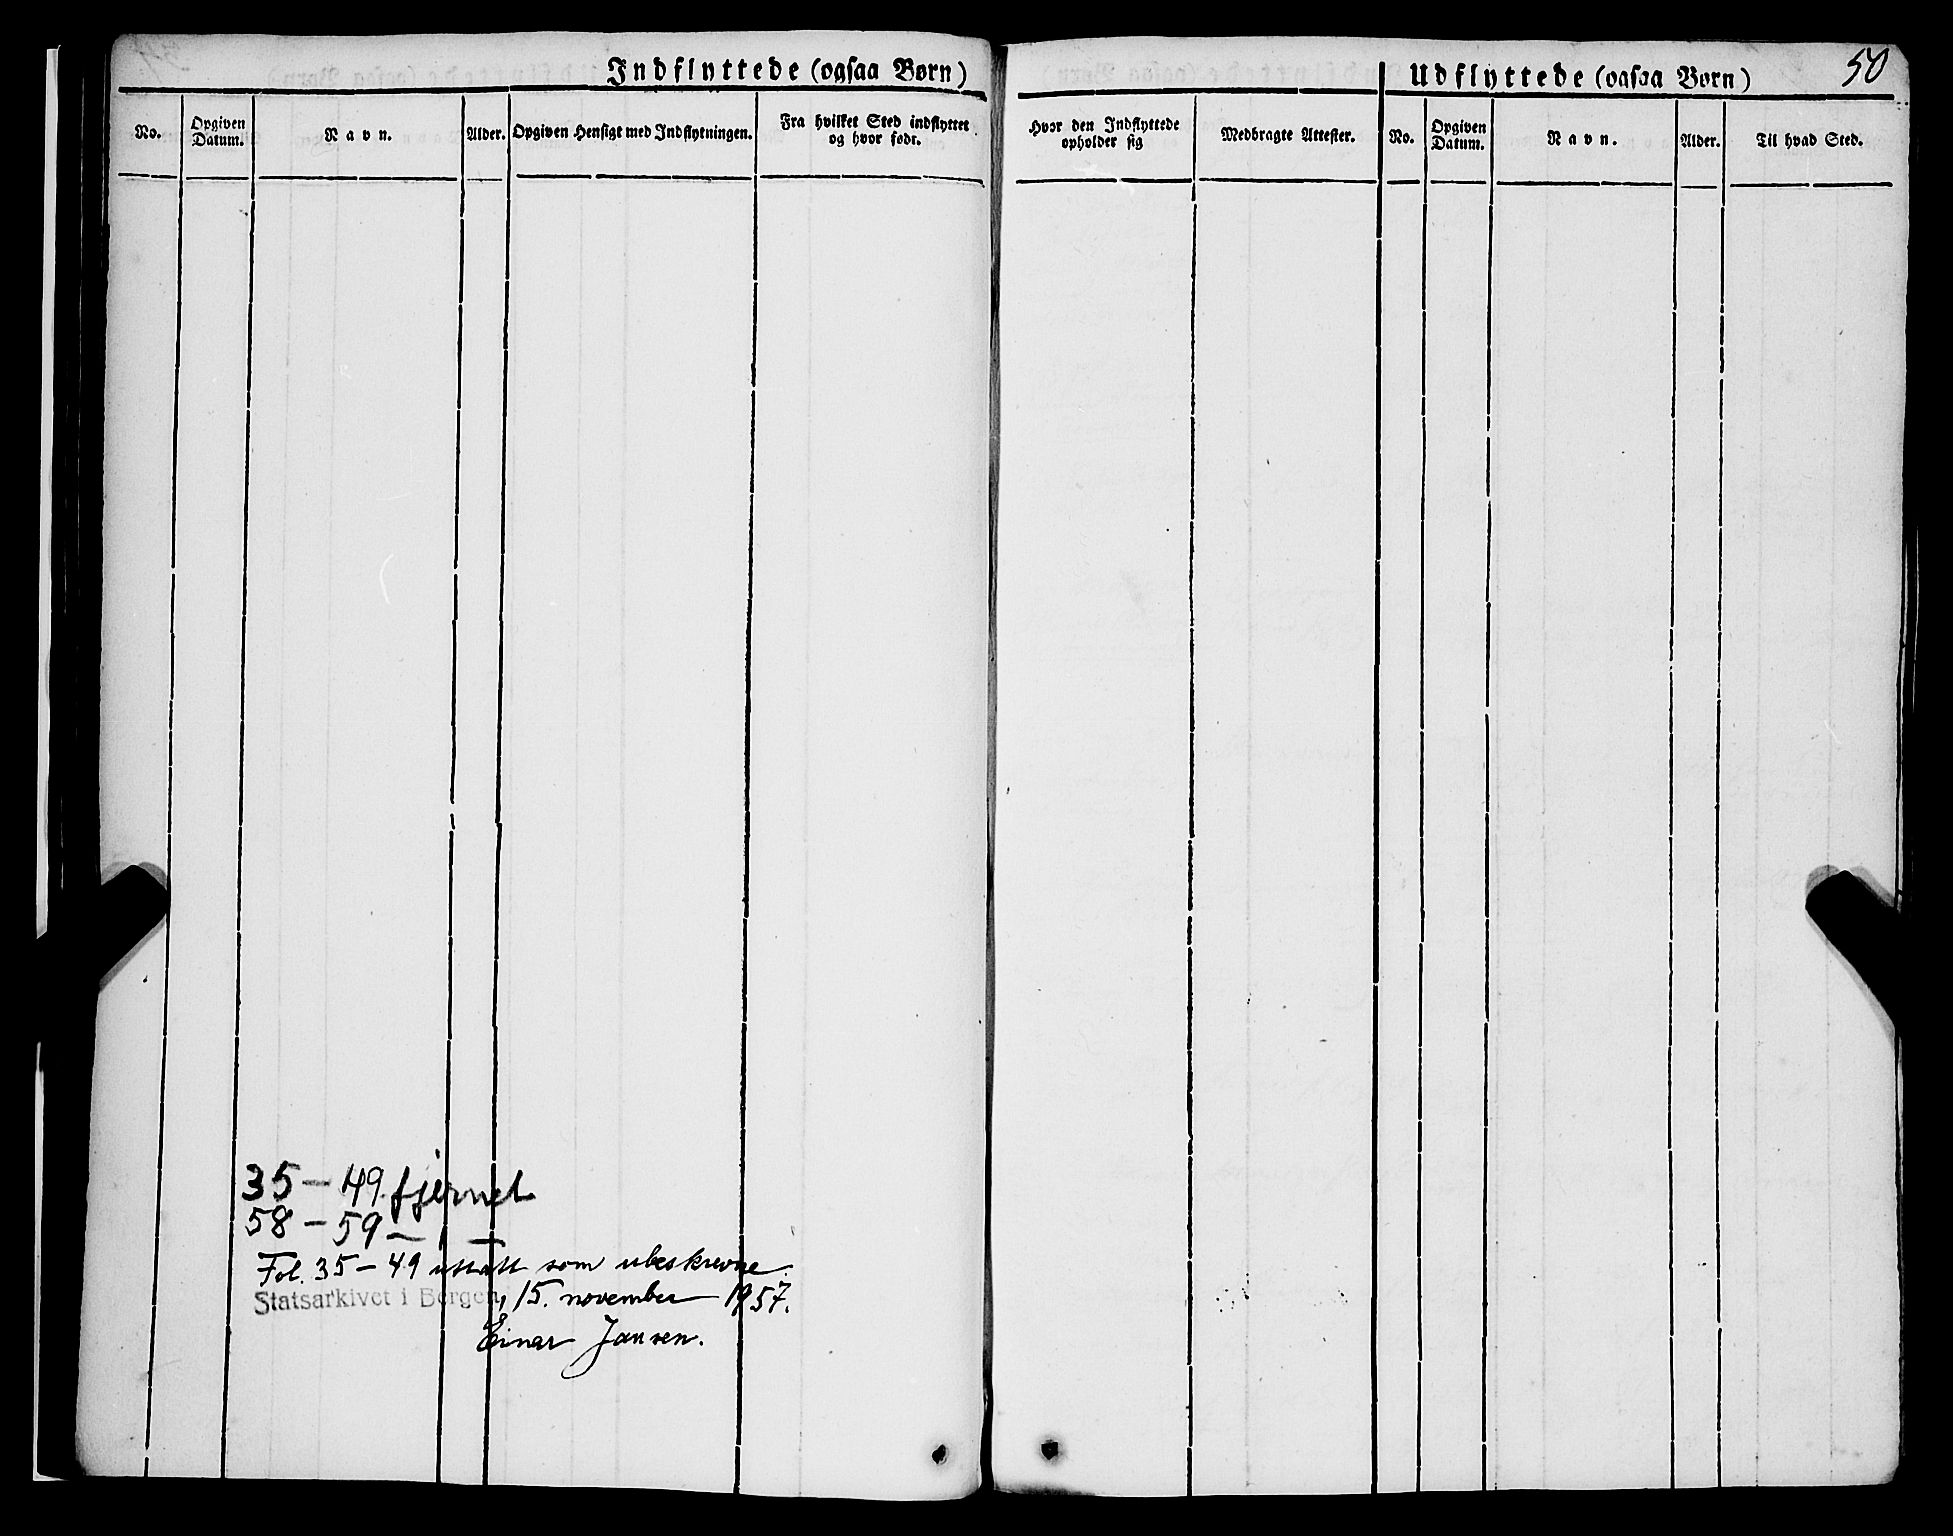 Indflyttede (ogsaa Børn)
No.
Opgiven Datum.
Navn.
Alder.
Opgiven Hensigt med Indflytningen.
Fra hvilket Sted indflyttet og hvor født.
35 — 49 fjernet
58 — 59 — " —
Fol. 35 — 49 uttatt som ubeskrevne.
Statsarkivet i Bergen, 15. november 1957.
Einar Jansen.
50
Udflyttede (ogsaa Børn)
Hvor den Indflyttede opholder sig
Medbragte Attester.
No.
Opgiven Datum.
Navn.
Alder.
Til hvad Sted.